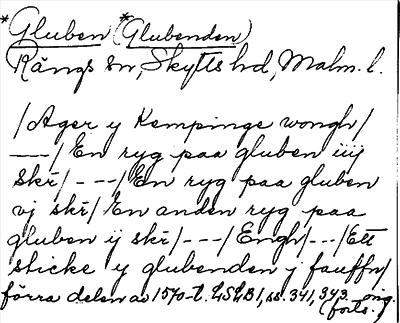 *Gluben (*Glubenden)
Rängs sn, Skytts hd, Malm. l.
/Ager y Kempinge wongh/
---/En ryg paa gluben iiij
skr̄/---/En ryg paa gluben
vj skr̄/En anden ryg paa
gluben ij skr̄/---/Engh/---/Ett
sticke y glubenden j fauffn/
förra delen av 1570-t. LSLB1, ss. 341, 343. orig.
(forts.)